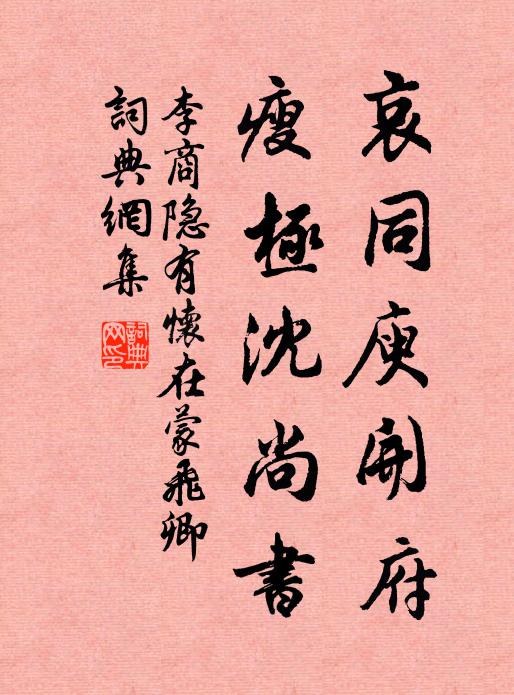 哀同庾開府
瘦極沈尚書
李商隐有懷在蒙飛卿
詞典網集
詞典網印